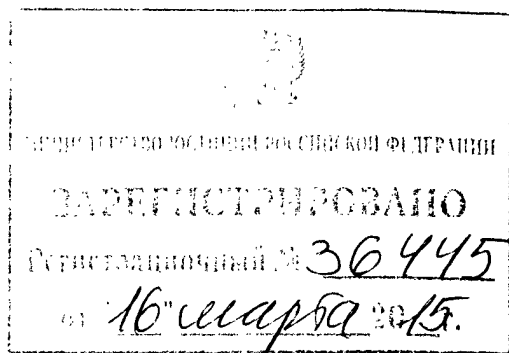 МИНИСТЕРСТВО ЮСТИЦИИ РОССИЙСКОЙ ФЕДЕРАЦИИ
ЗАРЕГИСТРИРОВАНО
Регистрационный № 36445
от "16" марта 2015г.